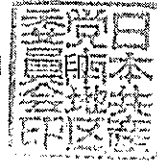 日本共産
党地区
委員会印